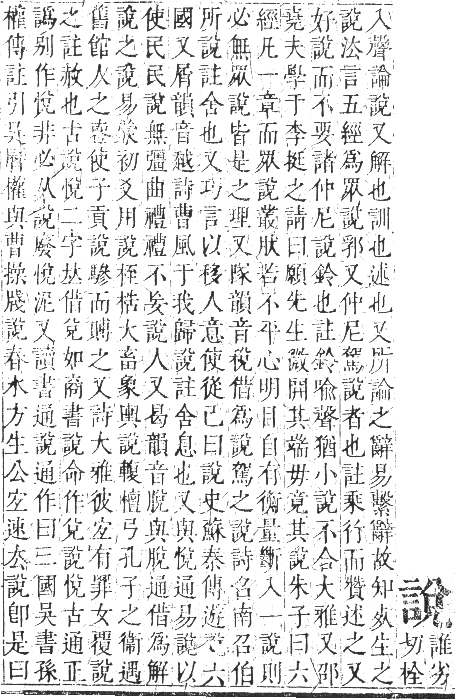 說誰劣切栓
入聲論說又解也訓也述也又所論之辭易繫辭故知死生之
說法言五經爲眾說郛又仲尼駕說者也註乘行而贊述之又
好說而不要諸仲尼說鈴也註鈴喩聲猶小說不合大雅又邵
堯夫學于李挺之請曰願先生微開其端毋竟其說朱子曰六
經凡一章而眾說叢肰若不平心明目自有衡量斷入一說則
必無眾說皆是之理又隊韻音稅借爲說駕之說詩召南召伯
所說註舍也又巧言以移人意使從己曰說史蘇泰傳遊說六
國又屑韻音越詩曹風于我歸說註舍息也又與悅通易說以
使民民說無疆曲禮禮不妄說人又曷韻音脫與脫通借爲解
說之說易蒙初爻用說桎梏大畜象輿說輹檀弓孔子之衞遇
舊館人之喪使子貢說驂而賻之又詩大雅彼宐有罪女覆說
之註赦也古說悅二字𠀤借兌如商書說命作兌說悅古通正
譌别作悅非必从說廢悅泥又讀書通說通作曰三國吳書孫
權傳註引吳曆權與曹操牋說春水方生公宐速去說卽是曰